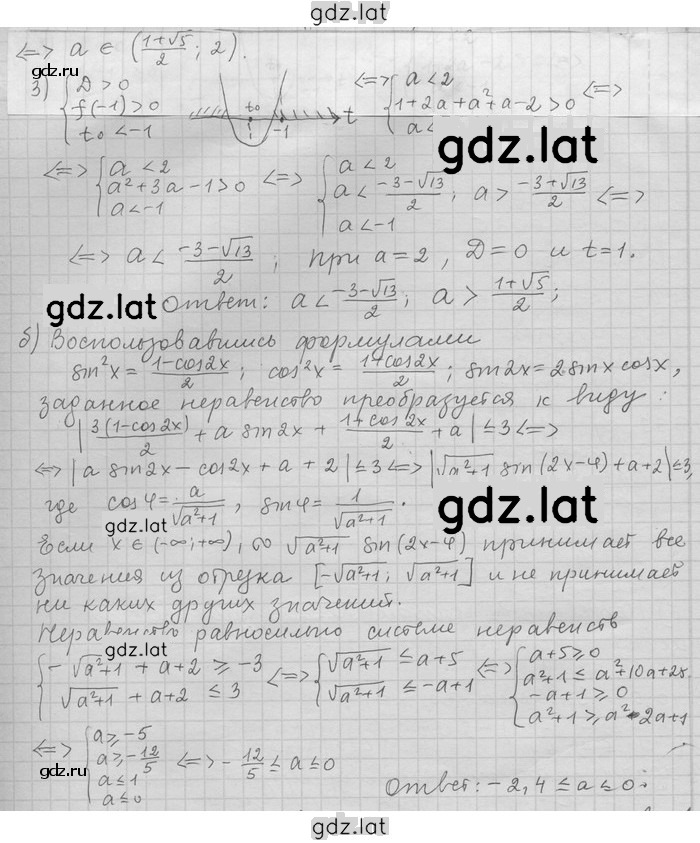 gdz.lat
⇔ a ∈ (1+√5/2; 2).
gdz.ru
3) { D > 0
f(-1) > 0
t₀ < -1
t₀ -1 t
⇔ { a < 2
1+2a+a²+a-2 > 0 ⇔
a <
gdz.lat
⇔ { a < 2
a²+3a-1 > 0
a < -1
⇔ { a < 2
a < -3-√13/2; a > -3+√13/2 ⇔
a < -1
⇔ a < -3-√13/2; при a = 2, D = 0 и t = 1.
gdz.lat
Ответ: a < -3-√13/2; a > 1+√5/2;
б) Воспользовавшись формулами
sin²x = 1-cos2x/2; cos²x = 1+cos2x/2; sin2x = 2sinx cosx,
заданное неравенство преобразуется к виду:
|3(1-cos2x)/2 + a sin2x + 1+cos2x/2 + a| ≤ 3 ⇔
⇔ |a sin2x - cos2x + a + 2| ≤ 3 ⇔ |√a²+1 sin(2x-φ) + a+2| ≤ 3,
где cosφ = a/√a²+1, sinφ = 1/√a²+1.
gdz.lat
gdz.lat
Если x ∈ (-∞; +∞), то √a²+1 sin(2x-φ) принимает все
значения из отрезка [-√a²+1; √a²+1] и не принимает
ни каких других значений.
Неравенство равносильно системе неравенств
{ -√a²+1 + a+2 ≥ -3
√a²+1 + a+2 ≤ 3
⇔ { √a²+1 ≤ a+5
√a²+1 ≤ -a+1
⇔ { a+5 ≥ 0
a²+1 ≤ a²+10a+25
-a+1 ≥ 0
a²+1 ≥ a²-2a+1
⇔ { a ≥ -5
a ≥ -12/5
a ≤ 1
a ≤ 0
⇔ -12/5 ≤ a ≤ 0
gdz.ru
Ответ: -2,4 ≤ a ≤ 0;
gdz.lat